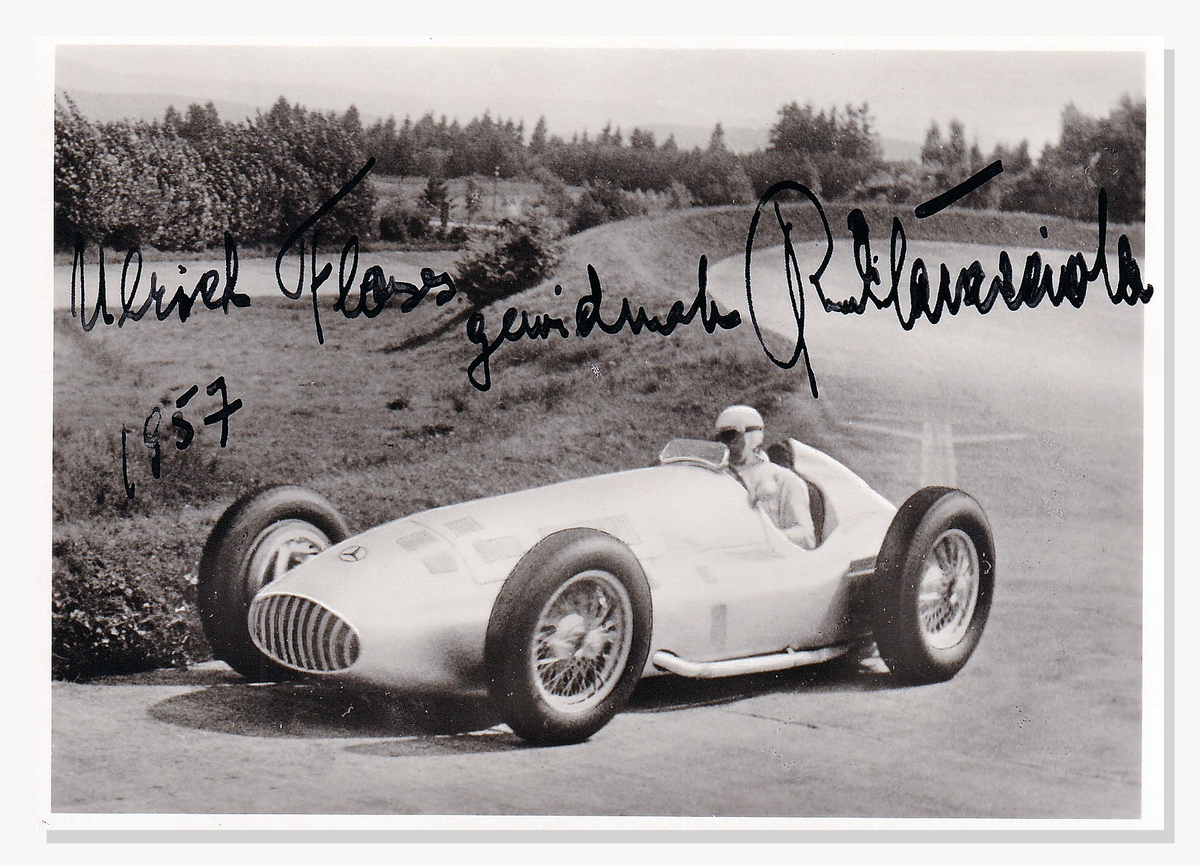 Ulrich Floss gewidmet R. Caracciola
1957